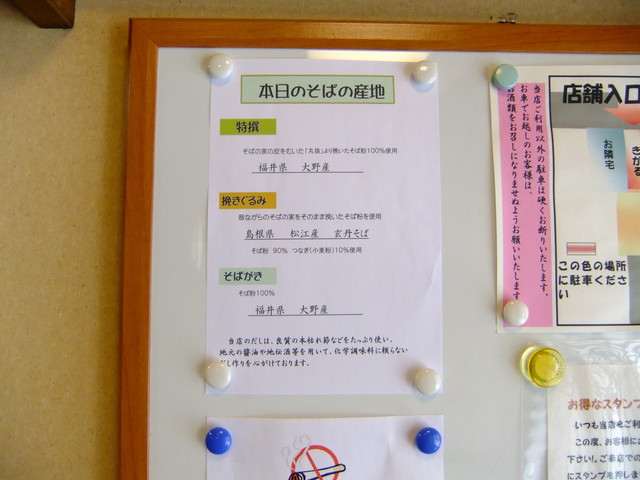 本日のそばの産地
特撰
そばの実の皮をむいた「丸抜」より挽いたそば粉100%使用
福井県 大野産
挽きぐるみ
昔ながらのそばの実をそのまま挽いたそば粉を使用
島根県 松江産 玄丹そば
そば粉 90% つなぎ(小麦粉)10%使用
そばがき
そば粉100%
福井県 大野産
当店のだしは、良質の本枯れ節などをたっぷり使い、
地元の醤油や地伝酒等を用いて、化学調味料に頼らない
だし作りを心がけております。
当店ご利用以外の駐車は硬くお断りいたします。
お車でお越しのお客様は、
お酒類をお召しになりませぬようお願いいたします
店舗入口
お隣宅
きがる
この色の場所
に駐車くださ
い
お得なスタンプ
いつも当店をご利
この度、お客様に
下さい!。ご来店での
にスタンプを押しま